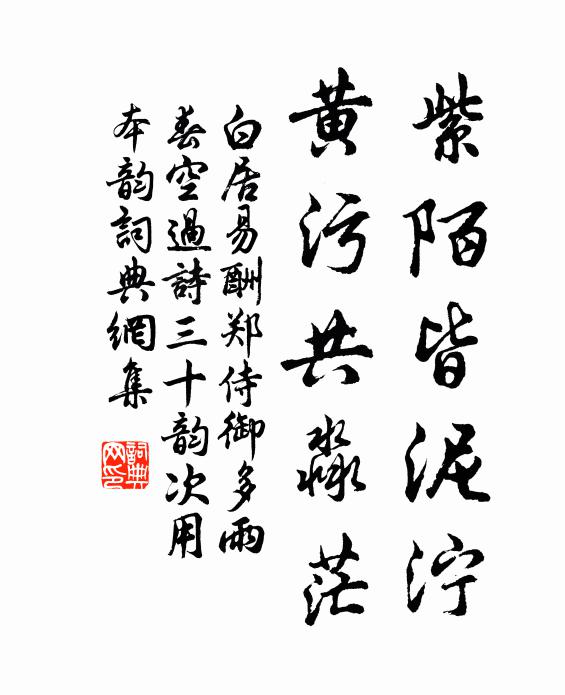 紫陌皆泥泞
黄污共淼茫
白居易酬郑侍御多雨
春空過詩三十韵次用
本韵詞典網集
詞典网印